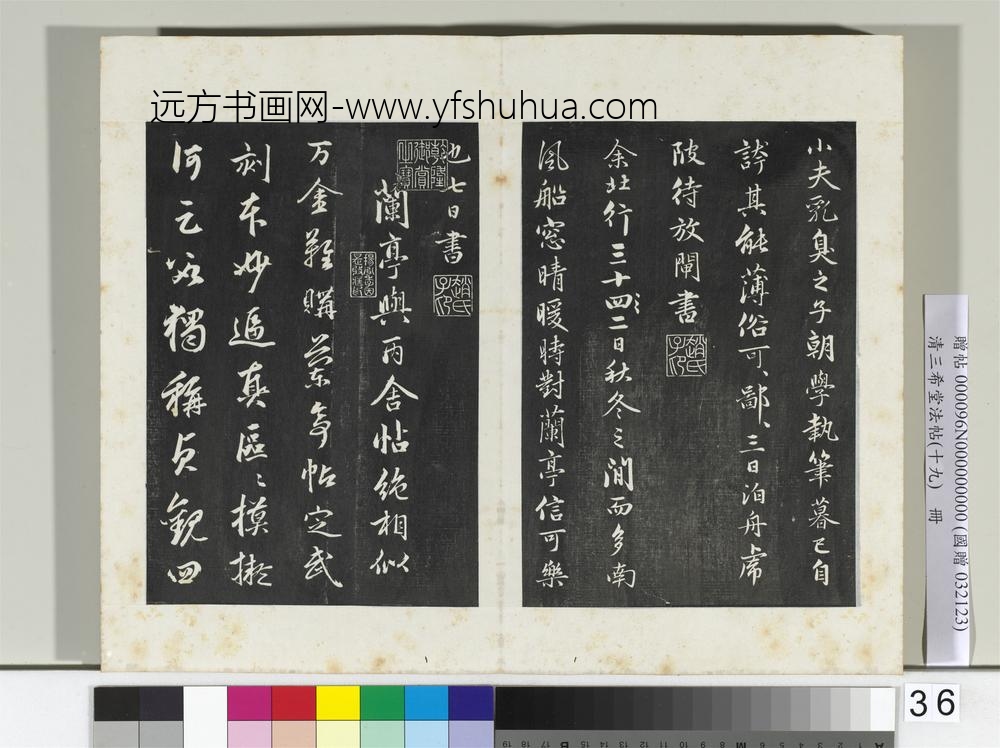 远方书画网-www.yfshuhua.com
小夫乳臭之子朝學執筆暮已自
誇其能薄俗可〻鄙〻三日泊舟虎
陂待放閘書
趙氏子昂
余北行三十四二日秋冬之間而多南
風船窓晴暖時對蘭亭信可樂
也七日書
趙氏子昂
乾隆御賞之寶
蘭亭與丙舍帖絶相似
万金難購蘭亭帖定武
刻本妙逼真區〻模擬
何云爾獨稱貞觀四
贈帖 000096N000000000 (國贈 032123)
清三希堂法帖(十九) 冊
36